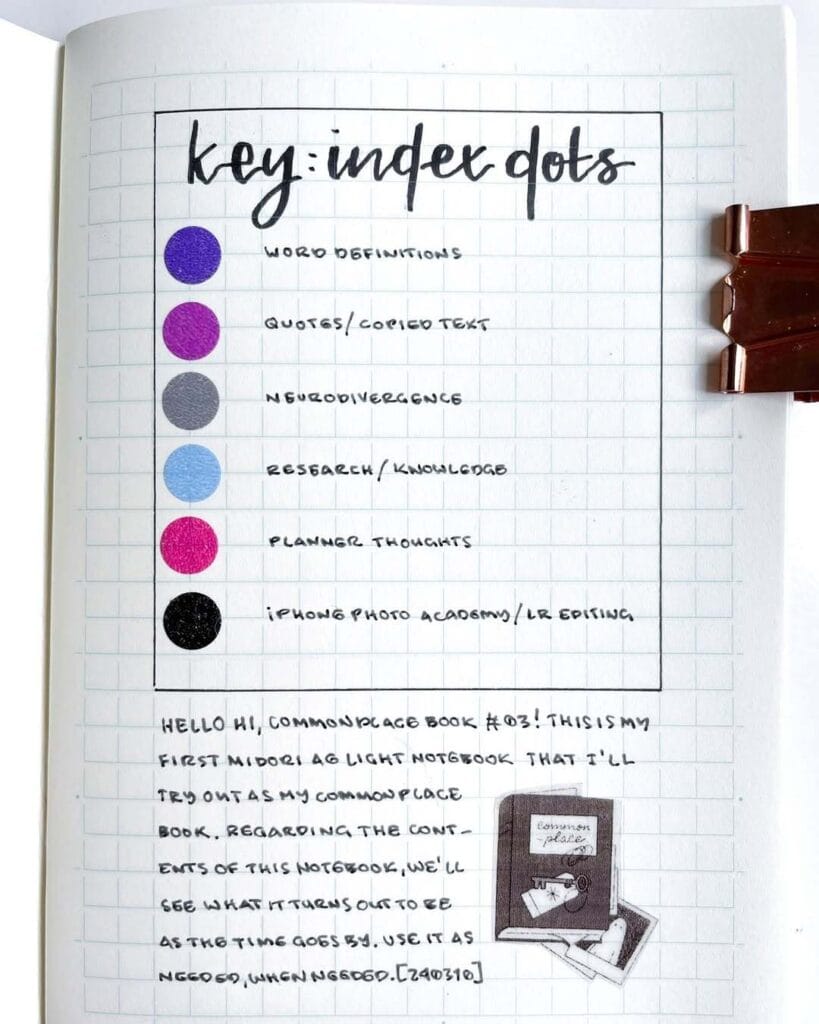 key: index dots
WORD DEFINITIONS
QUOTES/COPIED TEXT
NEURODIVERGENCE
RESEARCH/KNOWLEDGE
PLANNER THOUGHTS
iPHONE PHOTO ACADEMY/LR EDITING
HELLO HI, COMMONPLACE BOOK #03! THIS IS MY
FIRST MIDORI A6 LIGHT NOTEBOOK THAT I'LL
TRY OUT AS MY COMMONPLACE
BOOK. REGARDING THE CONT-
ENTS OF THIS NOTEBOOK, WE'LL
SEE WHAT IT TURNS OUT TO BE
AS THE TIME GOES BY. USE IT AS
NEEDED, WHEN NEEDED. [240310]
common
-place